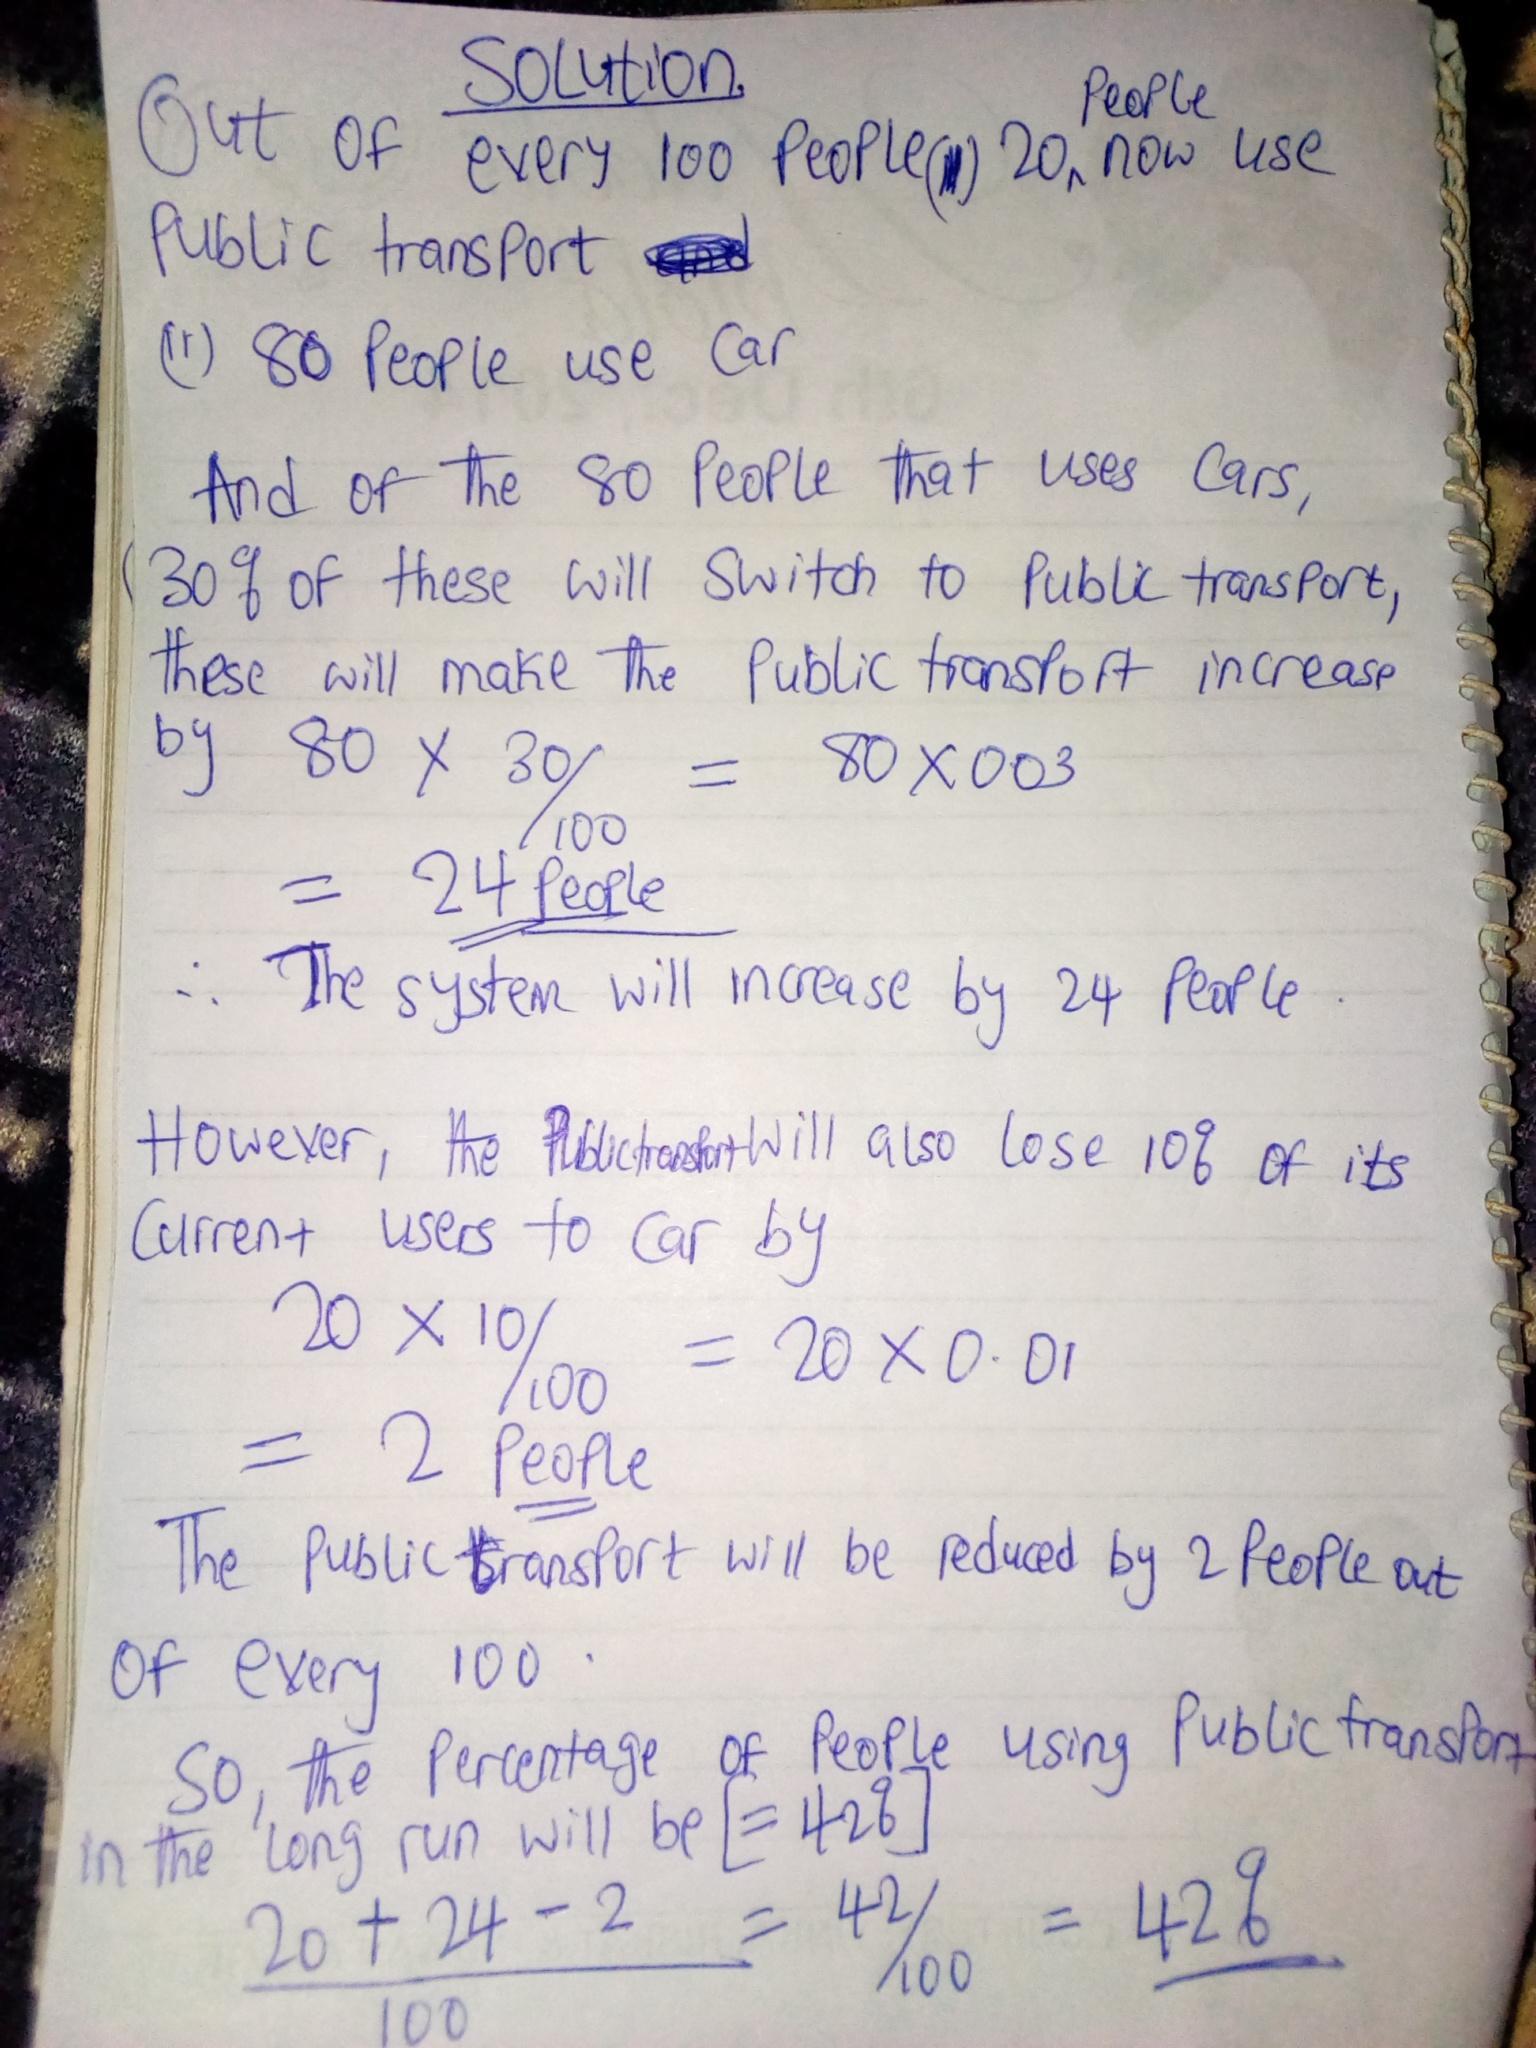 Solution.
Out of every 100 People (i) 20 People now use
Public transport
(ii) 80 People use Car
And of the 80 People that uses Cars,
30% of these will Switch to Public transport,
these will make the Public transport increase
by 80 X 30/100 = 80 X 003
= 24 People
∴ The system will increase by 24 People.
However, the Public transport Will also lose 10% of its
Current users to Car by
20 X 10/100 = 20 X 0.01
= 2 People
The Public transport will be reduced by 2 People out
of every 100.
So, the Percentage of People using Public transport
in the long run will be [= 42%]
20 + 24 - 2 / 100 = 42/100 = 42%